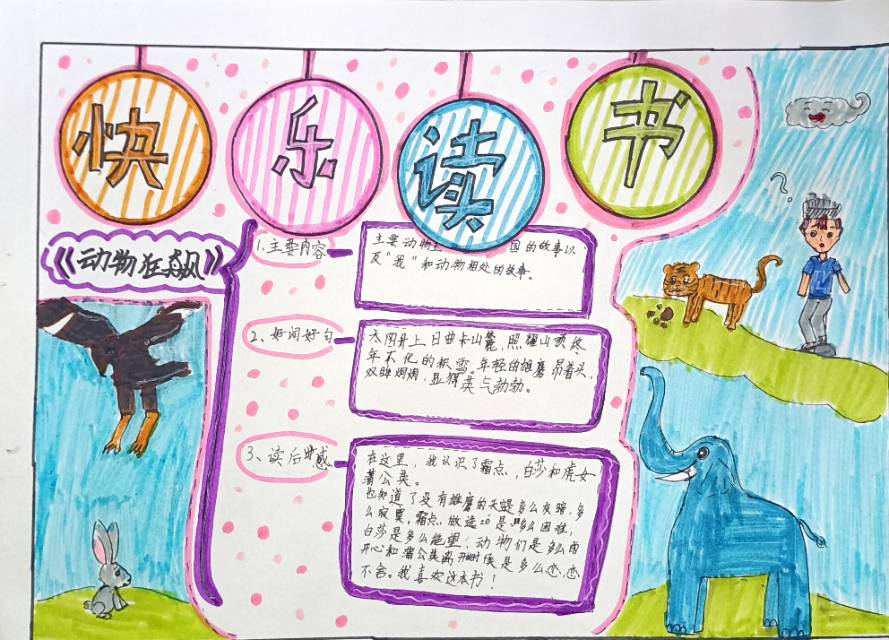 快乐读书
《动物狂飙》
1、主要内容
主要动物 国的故事以
及"我"和动物相处的故事。
2、好词好句
太阳升上日曲卡山麓,照耀山顶终
年不化的积雪。年轻的雄鹰昂着头,
双眸炯炯,显得英气勃勃。
3、读后感
在这里,我认识了霜点,白莎和虎女
蒲公英。
也知道了没有雄鹰的天空是多么灰暗,多
么寂寞。霜点 做 是多么困难,
白莎是多么绝望,动物们是多么
开心和蒲公英离开时候是多么恋恋
不舍。我喜欢这本书!
?
?